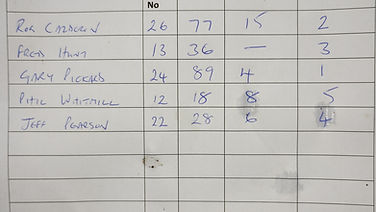 No
Rog 26 77 15 2
Fred Hunt 13 36 — 3
Gary Pickard 24 89 4 1
Phil Whitmill 12 18 8 5
Jeff Pearson 22 28 6 4